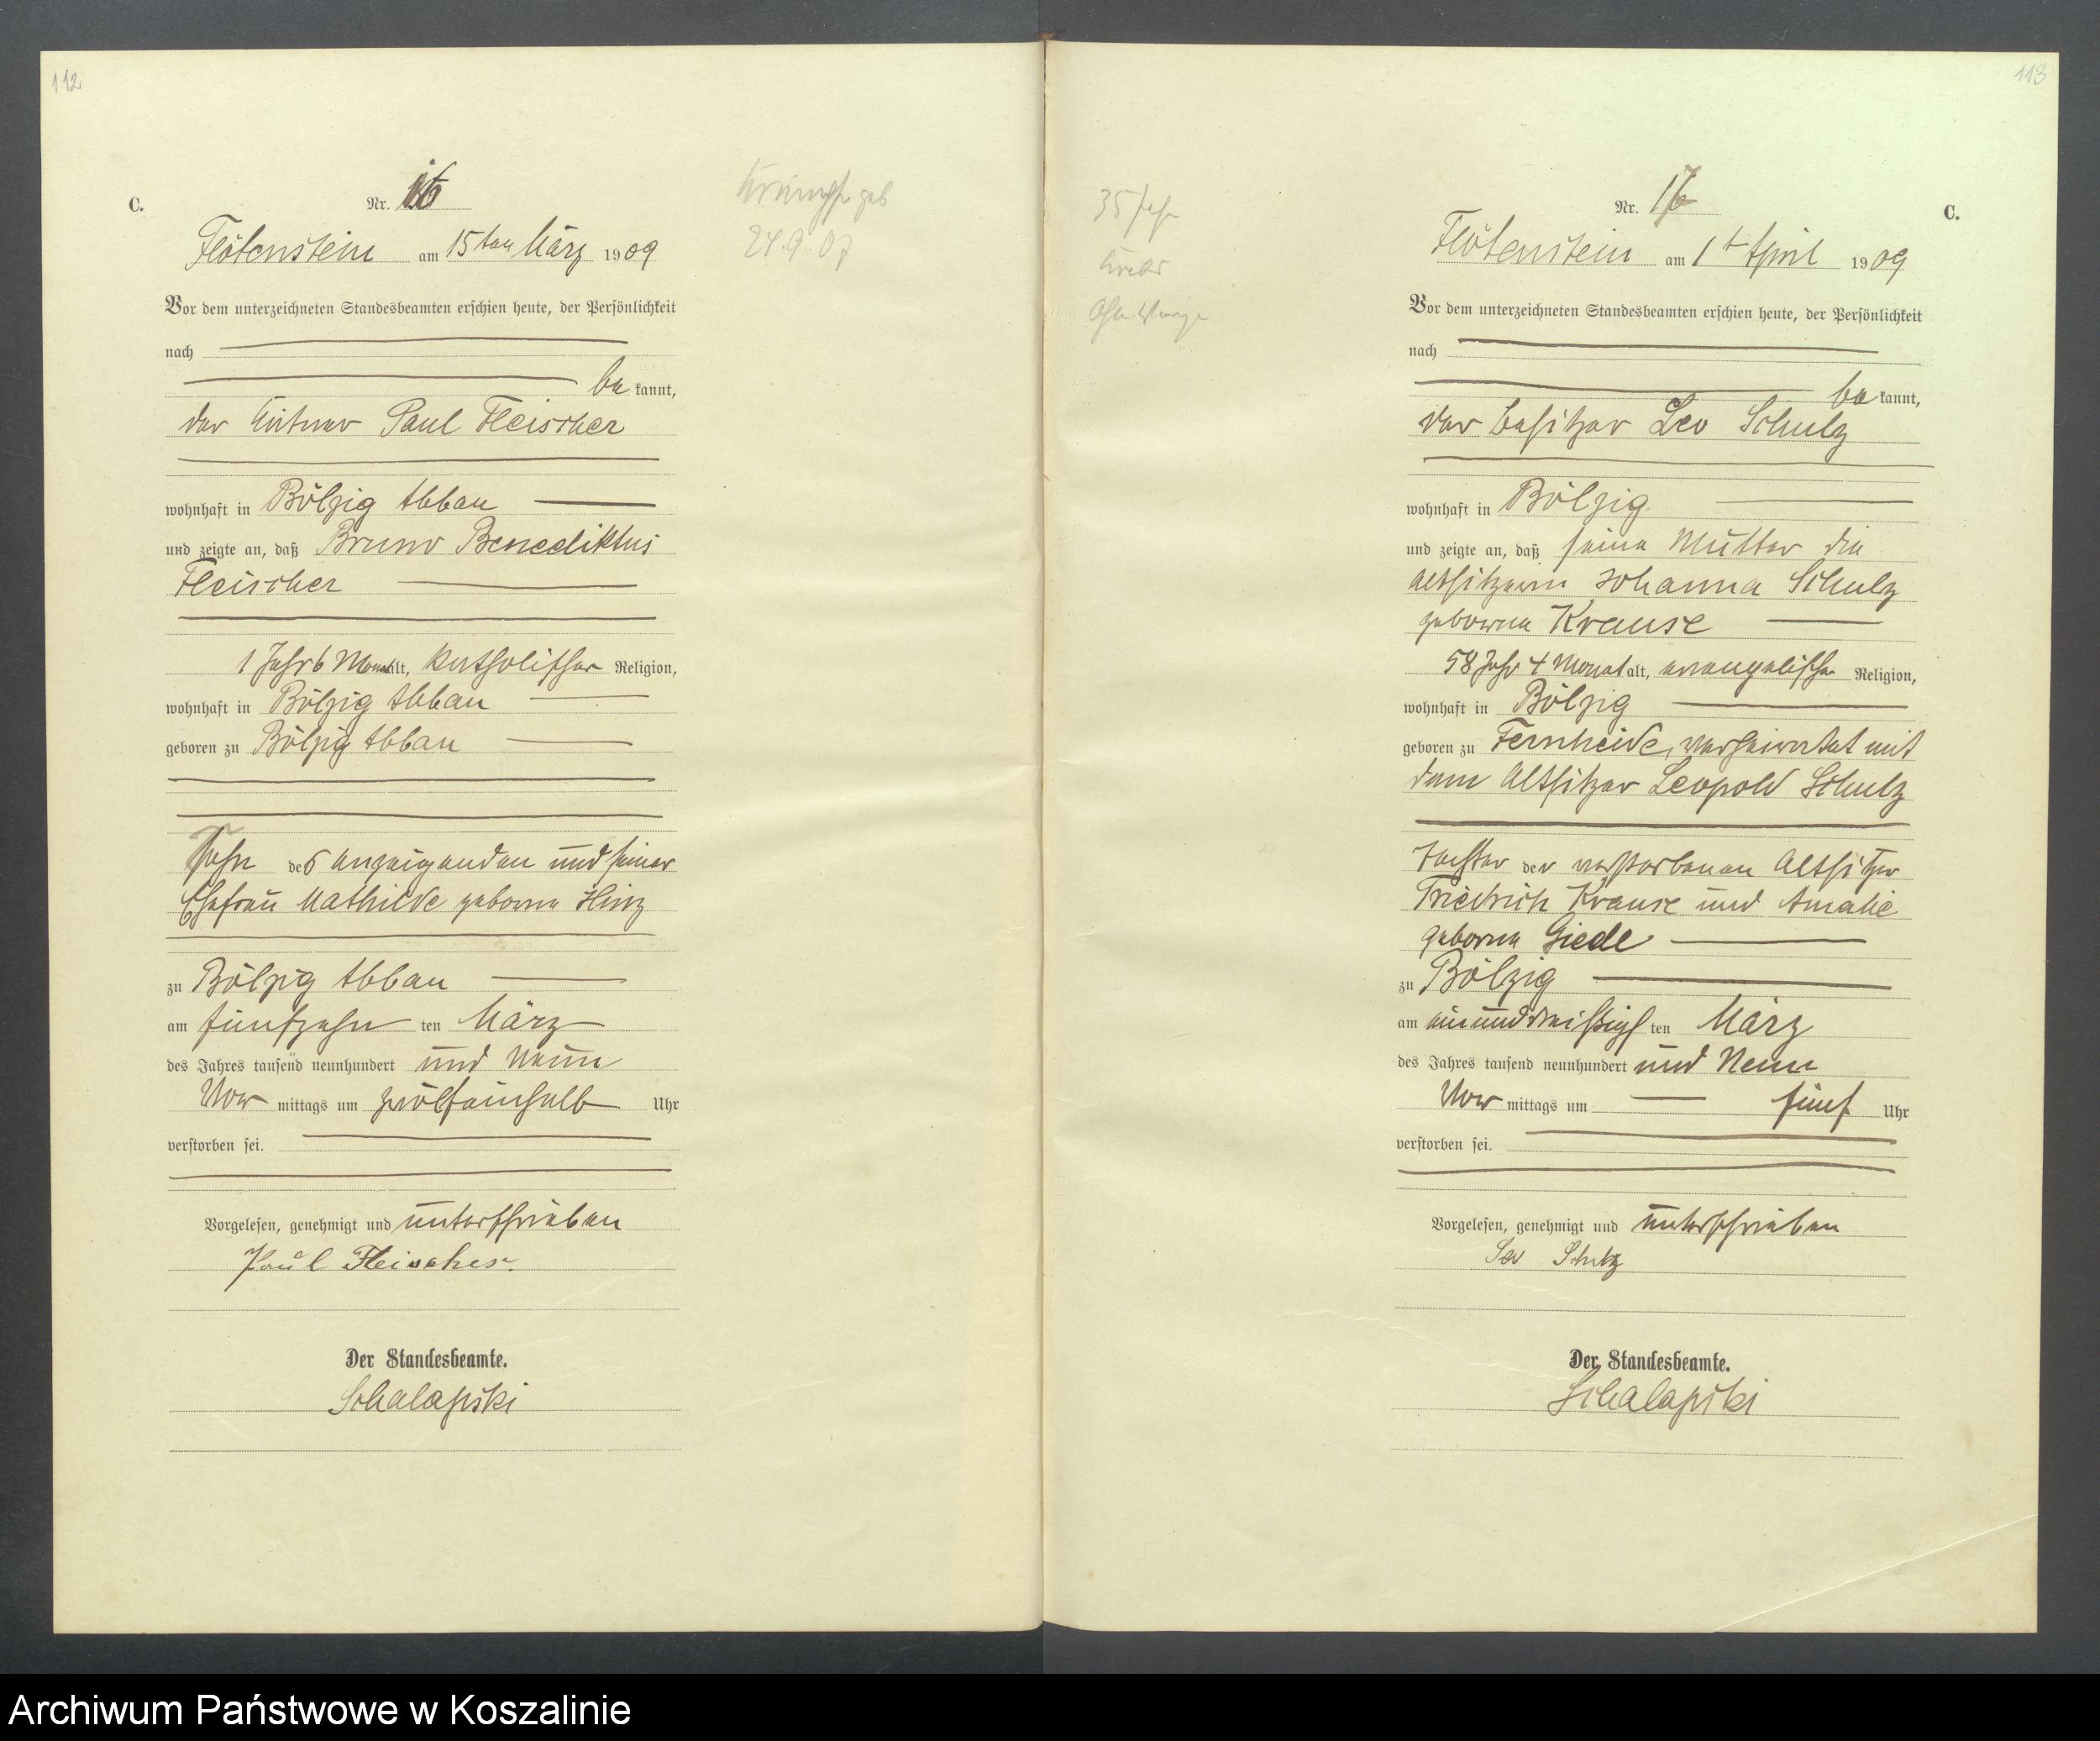 112
C.
Nr. 16
Flötenstein am 15ten März 1909
Vor dem unterzeichneten Standesbeamten erschien heute, der Persönlichkeit
nach
be kannt,
der Paul Fleischer
wohnhaft in Bölzig Abbau
und zeigte an, daß Bruno Benediktus
Fleischer
1 Jahr 6 Monat alt, katholischer Religion,
wohnhaft in Bölzig Abbau
geboren zu Bölzig Abbau
Sohn des Anzeigenden und seiner
Ehefrau Mathilde geborne Hinz
zu Bölzig Abbau
am fünfzehn ten März
des Jahres tausend neunhundert und Neun
Vor mittags um zwölfeinhalb Uhr
verstorben sei.
Vorgelesen, genehmigt und unterschrieben
Paul Fleischer.
Der Standesbeamte.
Schalapski
geb
24.9.07
113
C.
Nr. 17
Flötenstein am 1t April 1909
Vor dem unterzeichneten Standesbeamten erschien heute, der Persönlichkeit
nach
be kannt,
der Besitzer Leo Schulz
wohnhaft in Bölzig
und zeigte an, daß seine Mutter die
Altsitzerin Johanna Schulz
geborene Krause
58 Jahr 4 Monat alt, evangelischer Religion,
wohnhaft in Bölzig
geboren zu Fernheide, verheiratet mit
dem Altsitzer Leopold Schulz
Tochter der verstorbenen Altsitzer
Friedrich Krause und Amalie
geborne Giede
zu Bölzig
am einunddreißigs ten März
des Jahres tausend neunhundert und Neun
Vor mittags um fünf Uhr
verstorben sei.
Vorgelesen, genehmigt und unterschrieben
Leo Schulz
Der Standesbeamte.
Schalapski
35 Jahr
Krebs
Archiwum Państwowe w Koszalinie